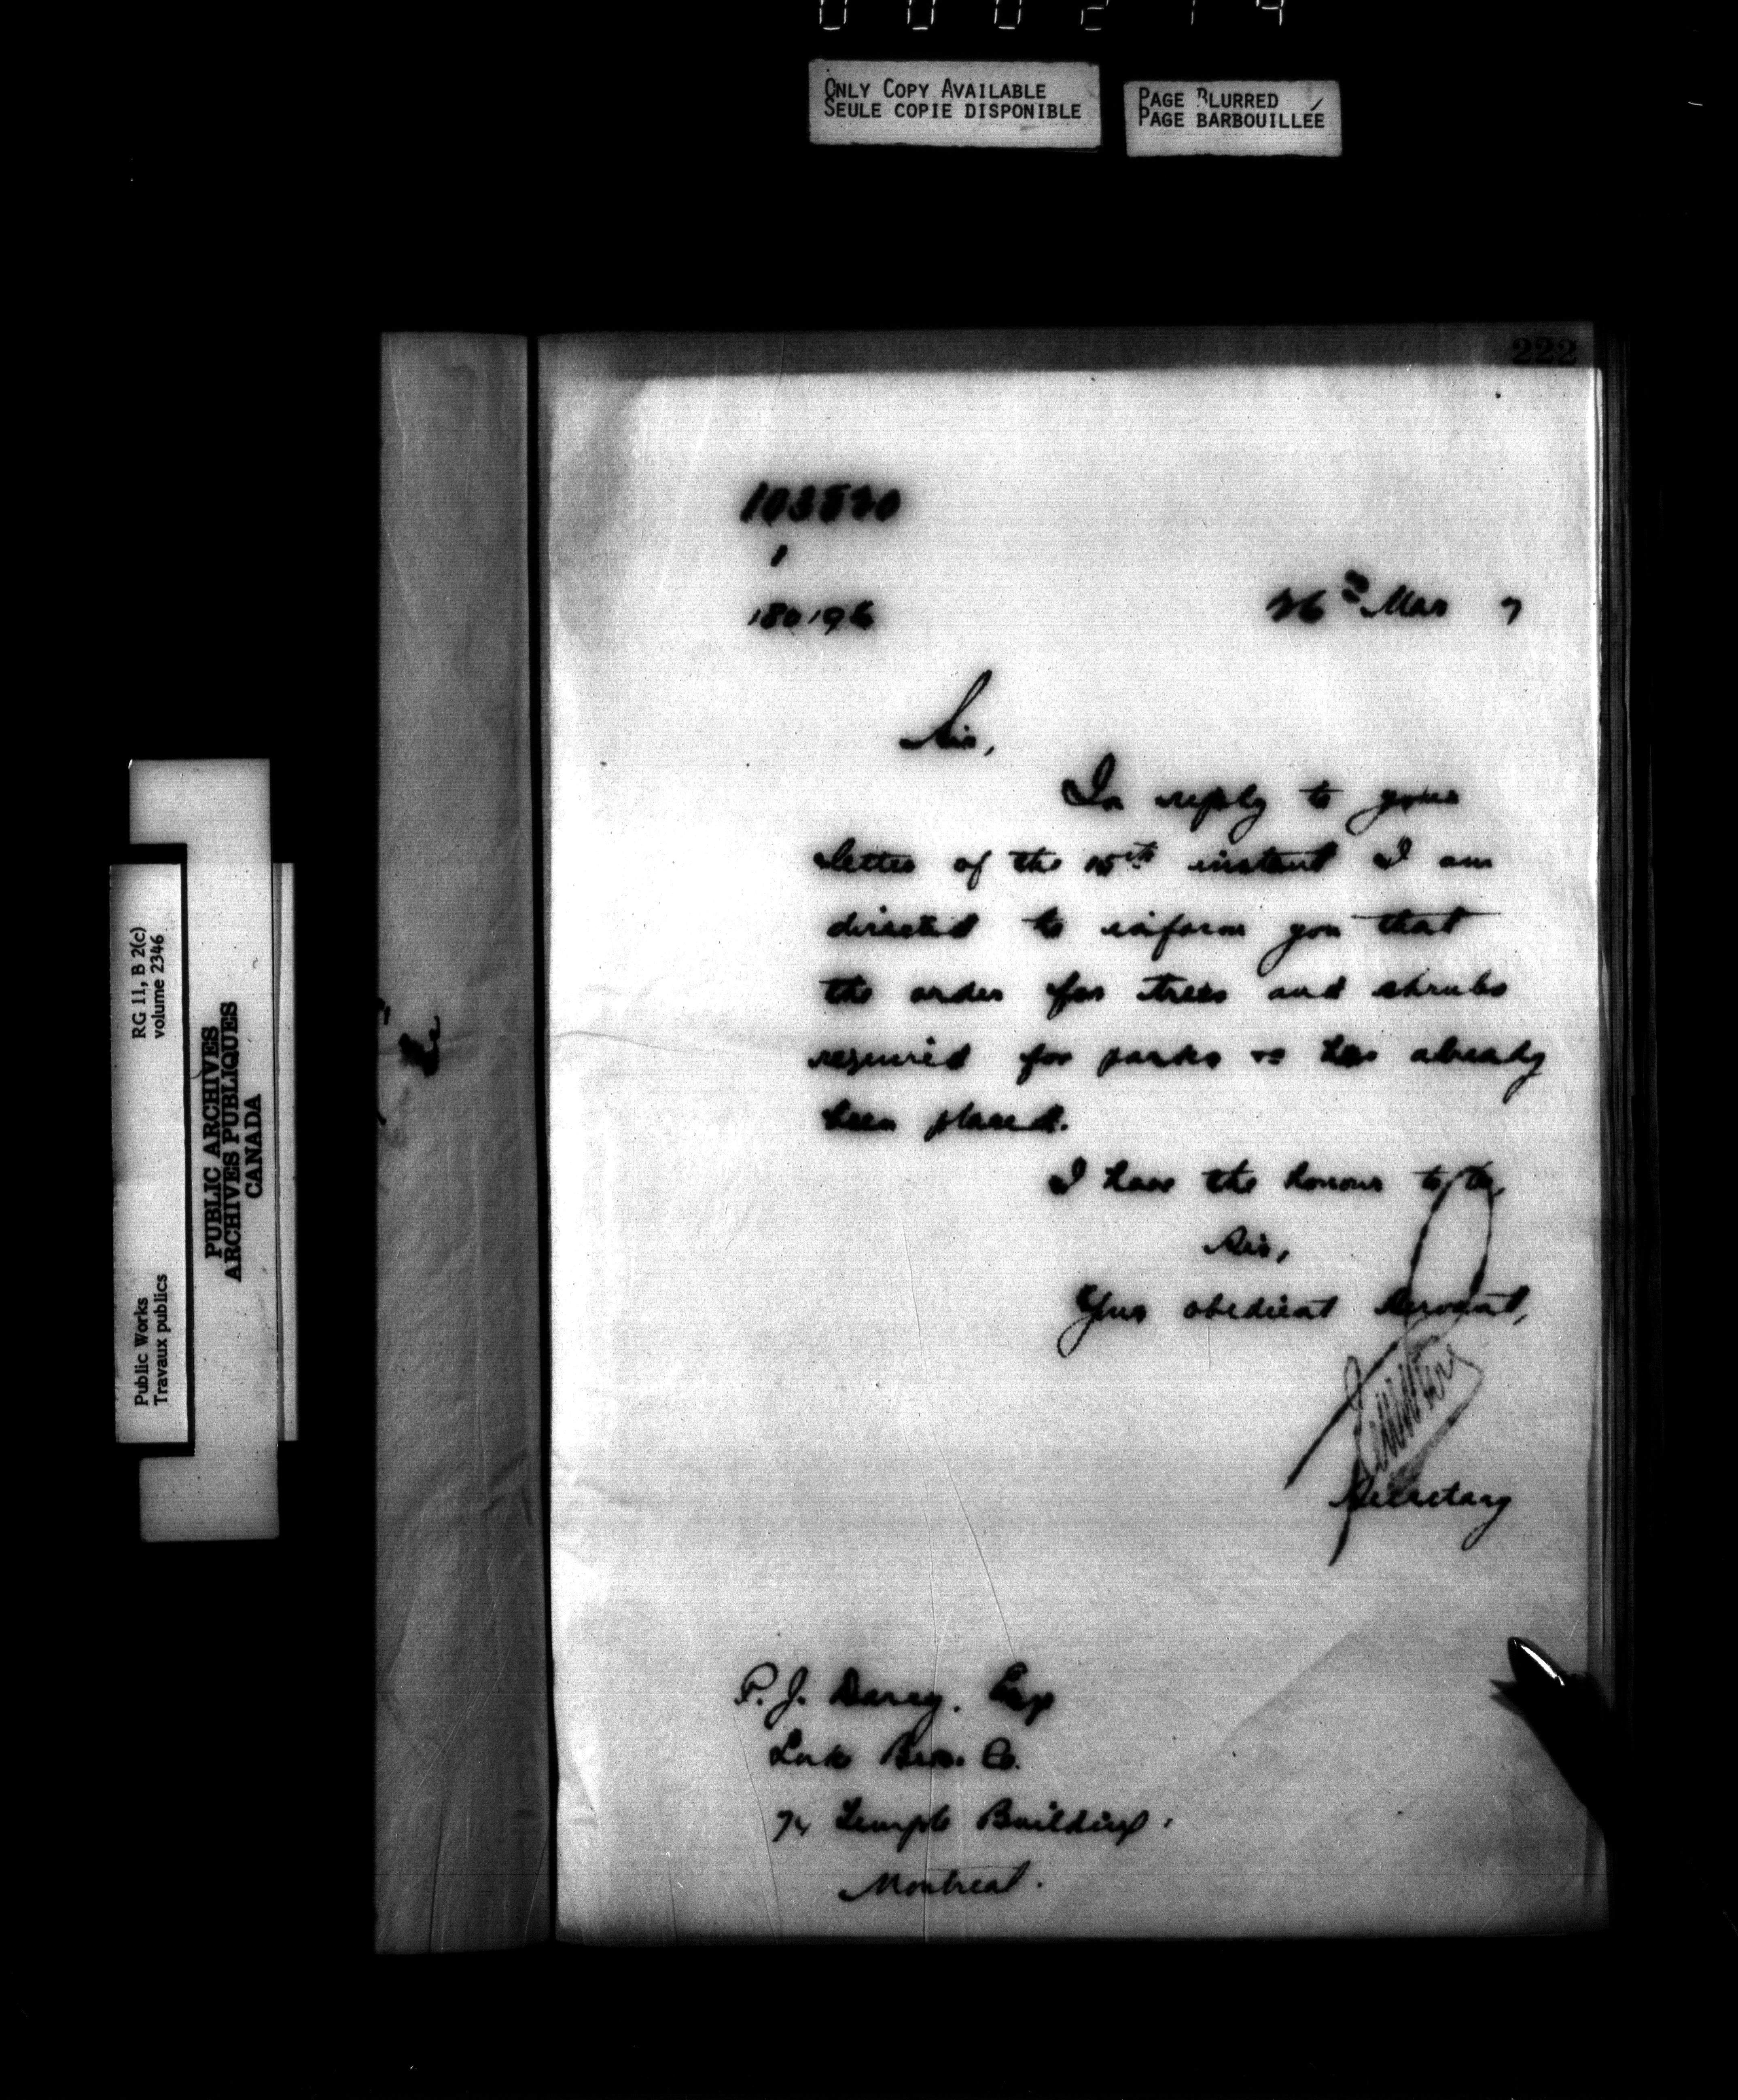 0 0 0 2 1 4
ONLY COPY AVAILABLE
SEULE COPIE DISPONIBLE
PAGE BLURRED
PAGE BARBOUILLÉE
222
103520
1
180196
26th Mar 7
Sir,
In reply to your
letter of the 15th instant I am
directed to inform you that
the order for trees and shrubs
required for parks has already
been placed.
I have the honour to be,
Sir,
Your obedient Servant,
Secretary
P. J. Darcy. Esq
Bros. Co.
74 Temple Building,
Montreal.
RG 11, B 2(c)
volume 2346
Public Works
Travaux publics
PUBLIC ARCHIVES
ARCHIVES PUBLIQUES
CANADA